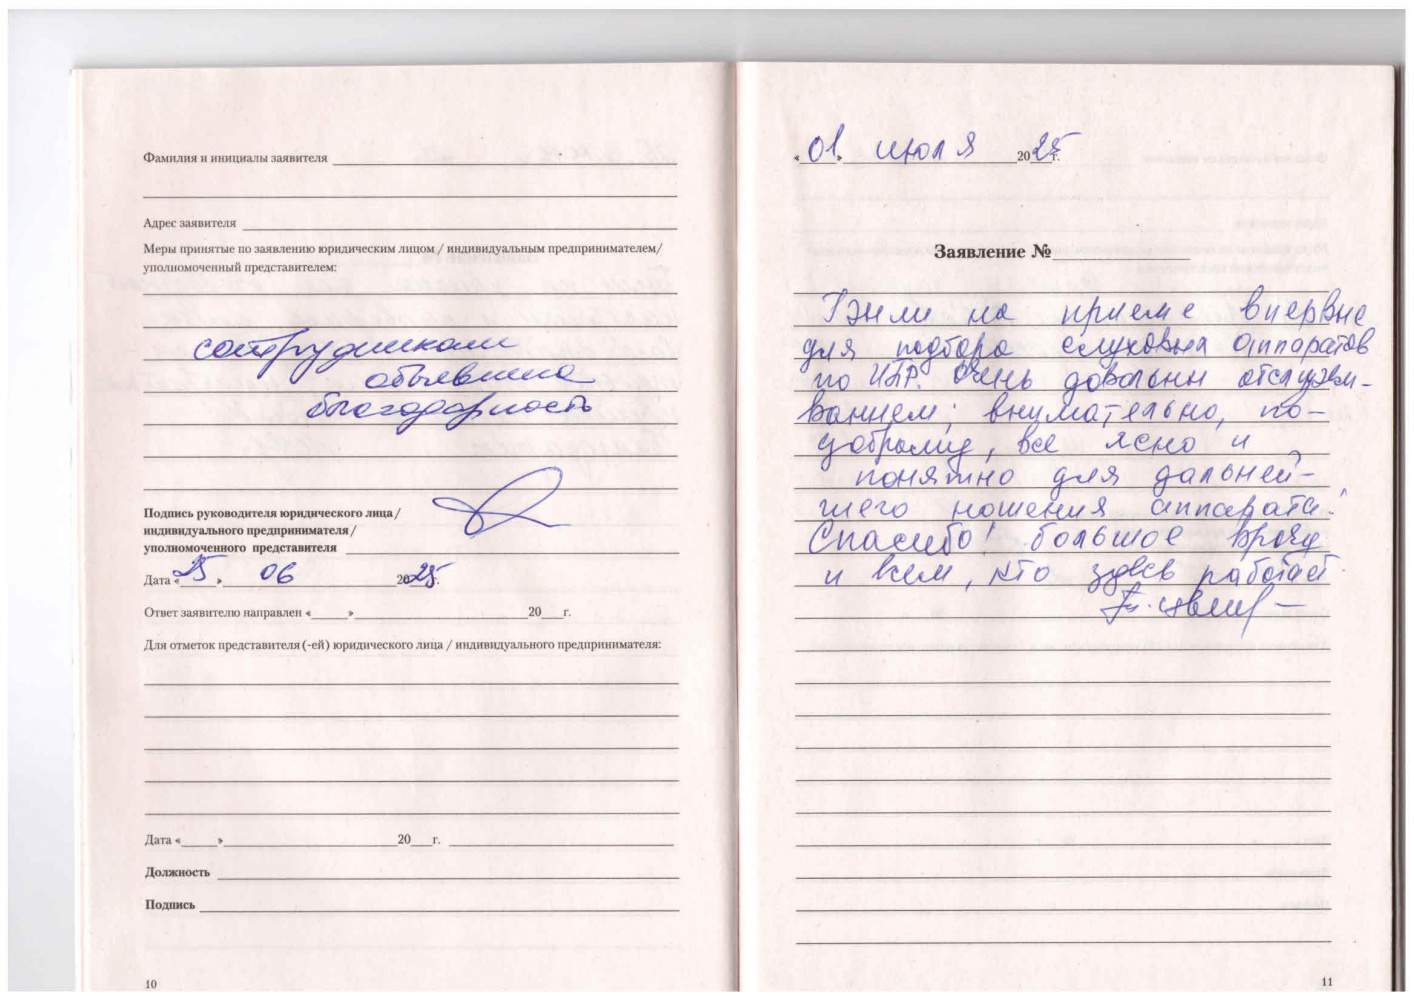 Фамилия и инициалы заявителя
Адрес заявителя
Меры принятые по заявлению юридическим лицом / индивидуальным предпринимателем/
уполномоченный представителем:
сотрудникам
объявлена
благодарность
Подпись руководителя юридического лица/
индивидуального предпринимателя/
уполномоченного представителя
Дата «25» 06 2025г.
Ответ заявителю направлен «___»___20___г.
Для отметок представителя (-ей) юридического лица / индивидуального предпринимателя:
Дата «___»___20___г.
Должность
Подпись
10
«01» июля 2025г.
Заявление №
Были на приеме впервые
для подбора слуховых аппаратов
по ИПР. Очень довольны обслужи-
ванием; внимательно, по-
доброму, все ясно и
понятно для дальней-
шего ношения аппарата.
Спасибо! большое врачу
и всем, кто здесь работает.
11